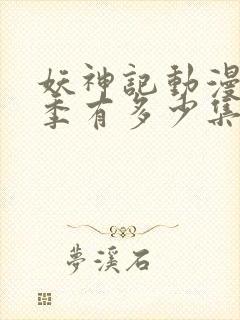 妖神記動漫
季有多少集
夢溪石